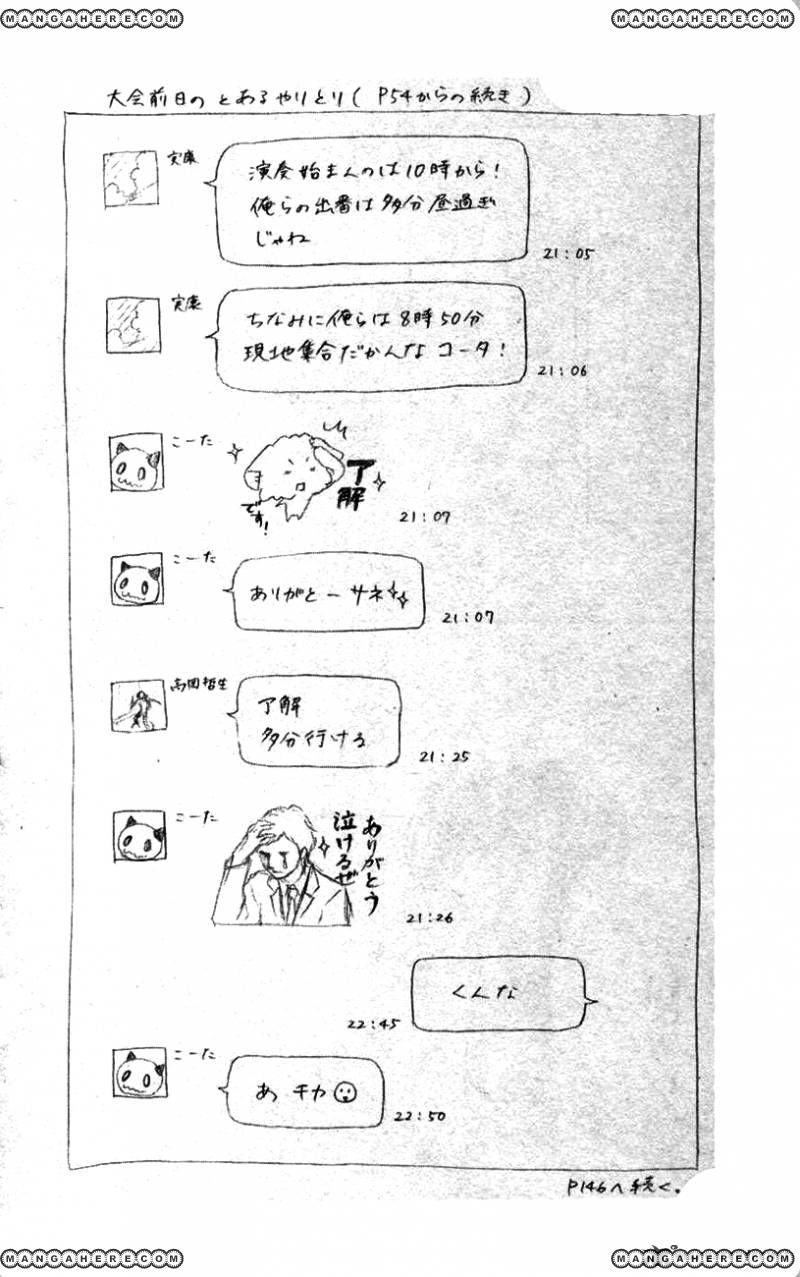 MANGAHERE.COM
MANGAHERE.COM
大会前日の とあるやりとり( P54からの続き )
実康
演奏始まんのは10時から!
俺らの出番は多分昼過ぎ
じゃね
21:05
実康
ちなみに俺らは8時50分
現地集合だかんな コータ!
21:06
こーた
了解
です!
21:07
こーた
ありがとー サネ
21:07
高岡哲生
了解
多分行ける
21:25
こーた
ありがとう
泣けるぜ
21:26
くんな
22:45
こーた
あ チカ
22:50
P146へ続く。
MANGAHERE.COM
MANGAHERE.COM